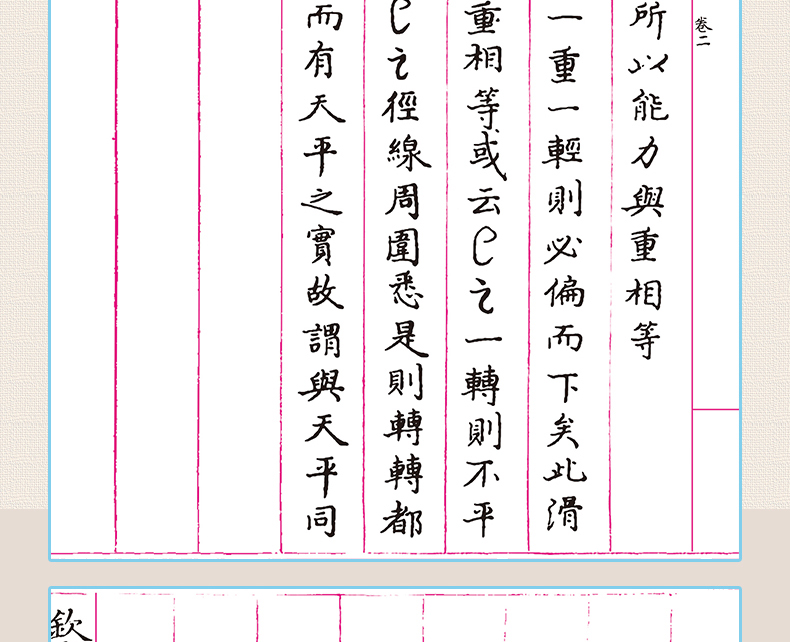 卷二
所以能力與重相等
一重一輕則必偏而下矣此滑
重相等或云㔾之一轉則不平
㔾之徑線周圍悉是則轉轉都
而有天平之實故謂與天平同
欽